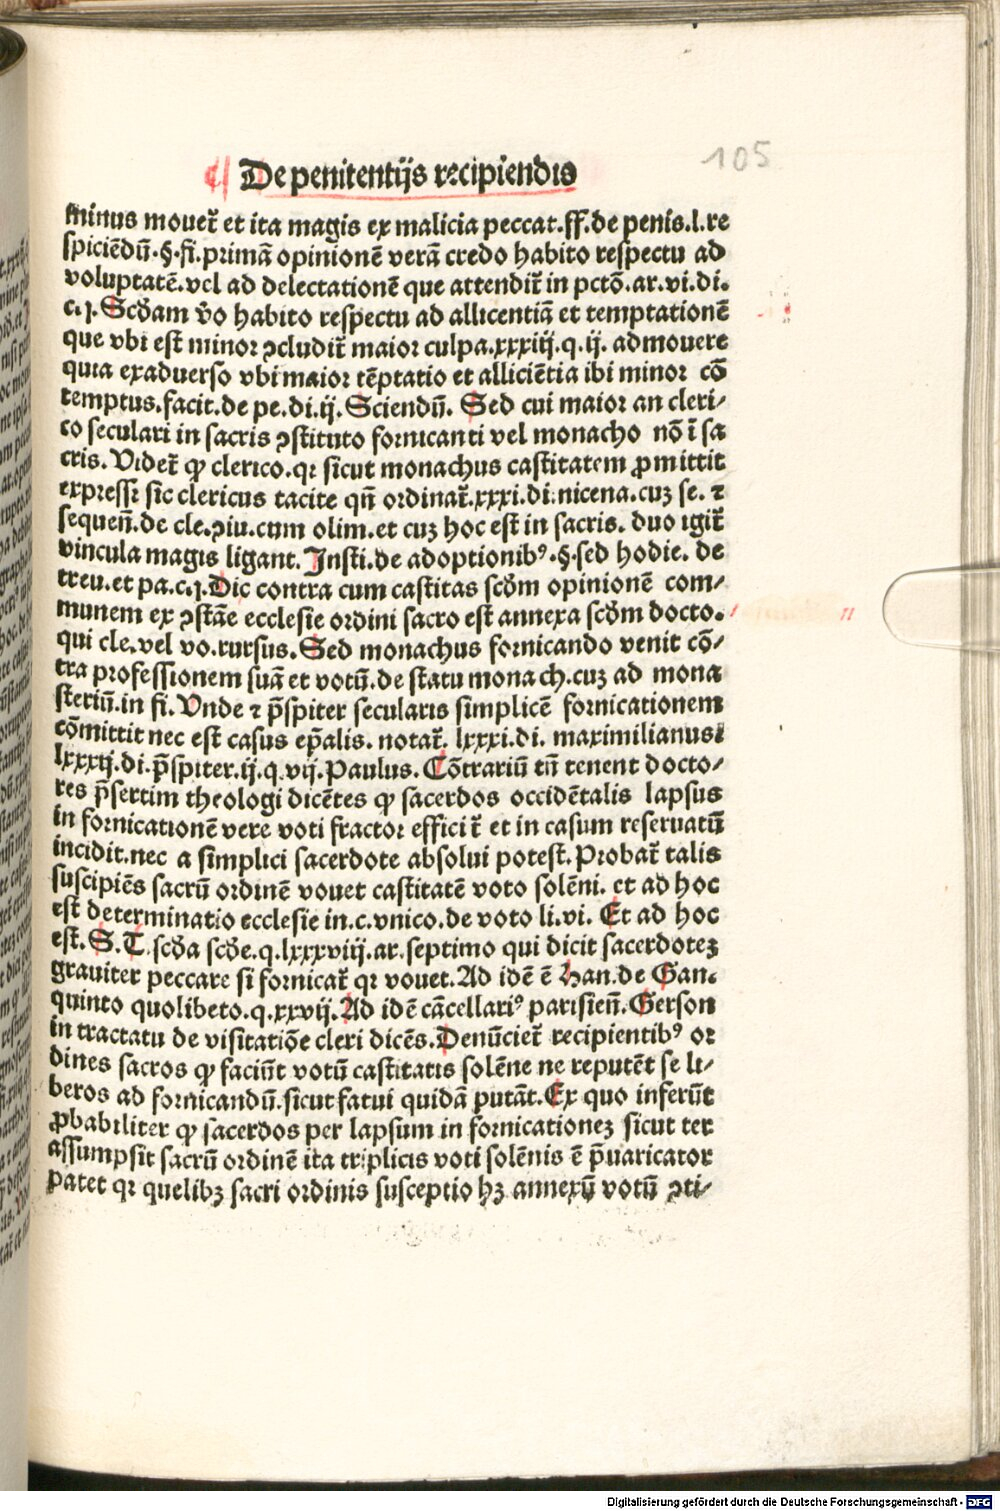 105
De penitentijs recipiendis
minus mouet᷑ et ita magis ex malicia peccat.ff.de penis.l.re
spiciēdū.§.fi.primā opinionē verā credo habito respectu ad
voluptatē.vel ad delectationē que attendit᷑ in pctō.ar.vi.di.
c.j.Scḋam v̊o habito respectu ad allicentiā et temptationē
que vbi est minor ꝯcludit᷑ maior culpa.xxxiij.q.ij. admouere
quia exaduerso vbi maior tēptatio et alliciētia ibi minor cō
temptus.facit.de pe.di.ij.Sciendū. Sed cui maior an cleri⸗
co seculari in sacris ꝯstituto fornicanti vel monacho nō ī sa
cris.Videt᷑ ꝙ clerico.qꝛ sicut monachus castitatem ꝓmittit
expresse sic clericus tacite qn̄ ordinat᷑.xxxi.di.nicena.cuꝫ se.⁊
sequen̄.de cle.ꝯiu.cum olim.et cuꝫ hoc est in sacris. duo igit᷑
vincula magis ligant.Insti.de adoptionibꝰ.§.sed hodie. de
treu.et pa.c.j.Dic contra cum castitas scḋm opinionē com⸗
munem ex ꝯstāe ecclesie ordini sacro est annexa scḋm docto.
qui cle.vel vo.rursus.Sed monachus fornicando venit cō⸗
tra professionem suā et votū.de statu monach.cuꝫ ad mona
steriū.in fi.Vnde ⁊ p̄spiter secularis simplicē fornicationem
cōmittit nec est casus ep̄alis. notat᷑. lxxxi.di. maximilianus⁊
lxxxij.di.p̄spiter.ij.q.vij.Paulus. Cōtrariū tn̄ tenent docto⸗
res p̄sertim theologi dicētes ꝙ sacerdos occidētalis lapsus
in fornicationē vere voti fractor effici t᷑ et in casum reseruatū
incidit.nec a simplici sacerdote absolui potest.Probat᷑ talis
suscipiēs sacrū ordinē vouet castitatē voto solēni. et ad hoc
est determinatio ecclesie in.c.vnico.de voto li.vi. Et ad hoc
est.S.T.scḋa scḋe.q.lxxxviij.ar.septimo qui dicit sacerdoteꝫ
grauiter peccare si fornicat᷑ qꝛ vouet.Ad idē ē Han.de Gan.
quinto quolibeto.q.xxvij.Ad idē cācellariꝰ parisien̄.Gerson
in tractatu de visitatiōe cleri dicēs.Denūciet᷑ recipientibꝰ or
dines sacros ꝙ faciūt votū castitatis solēne ne reputēt se li⸗
beros ad fornicandū.sicut fatui quidā putāt.Ex quo inferūt
ꝓbabiliter ꝙ sacerdos per lapsum in fornicationeꝫ sicut ter
assumpsit sacrū ordinē ita triplicis voti solēnis ē p̄uaricator
patet qꝛ quelibꝫ sacri ordinis susceptio hꝫ annexū votū ꝯti⸗
Digitalisierung gefördert durch die Deutsche Forschungsgemeinschaft - DFG